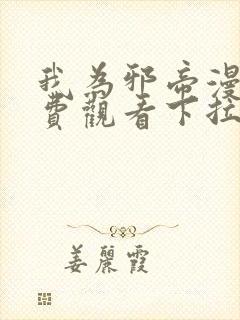 我為邪帝漫
費觀看下拉
姜麗霞